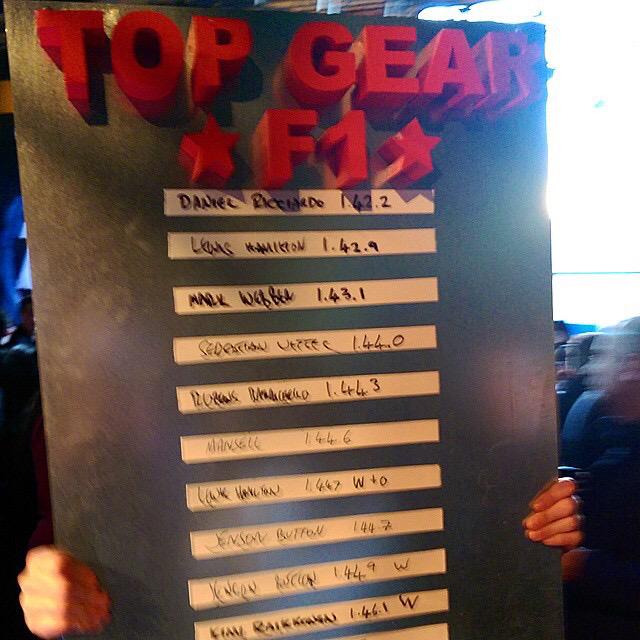 TOP GEAR
F1
DANIEL RICCIARDO 1.42.2
LEWIS HAMILTON 1.42.9
MARK WEBBER 1.43.1
SEBASTIAN VETTEL 1.44.0
RUBENS BARRICHELLO 1.44.3
MANSELL 1.44.6
LEWIS HAMILTON 1.44.7 W+O
JENSON BUTTON 1.44.7
JENSON BUTTON 1.44.9 W
KIMI RAIKKONEN 1.46.1 W